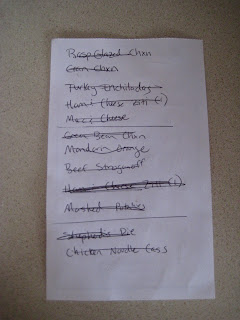 Rasp Glazed Chxn
Corn Chxn
Turkey Enchiladas
Ham & Cheese Ziti (1)
Mac & Cheese
Green Bean Chxn
Mandarin Orange
Beef Stroganoff
Ham & Cheese Ziti (1)
Mashed Potatoes
Shepherds Pie
Chicken Noodle Cass